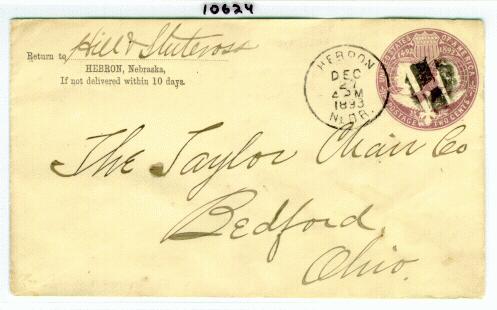 10624
Return to Hill &
HEBRON, Nebraska,
If not delivered within 10 days.
HEBRON
DEC
27
4 PM
1893
NEBR.
UNITED STATES OF AMERICA
1492 1892
POSTAGE TWO CENTS
The Taylor Chair Co
Bedford
Ohio.